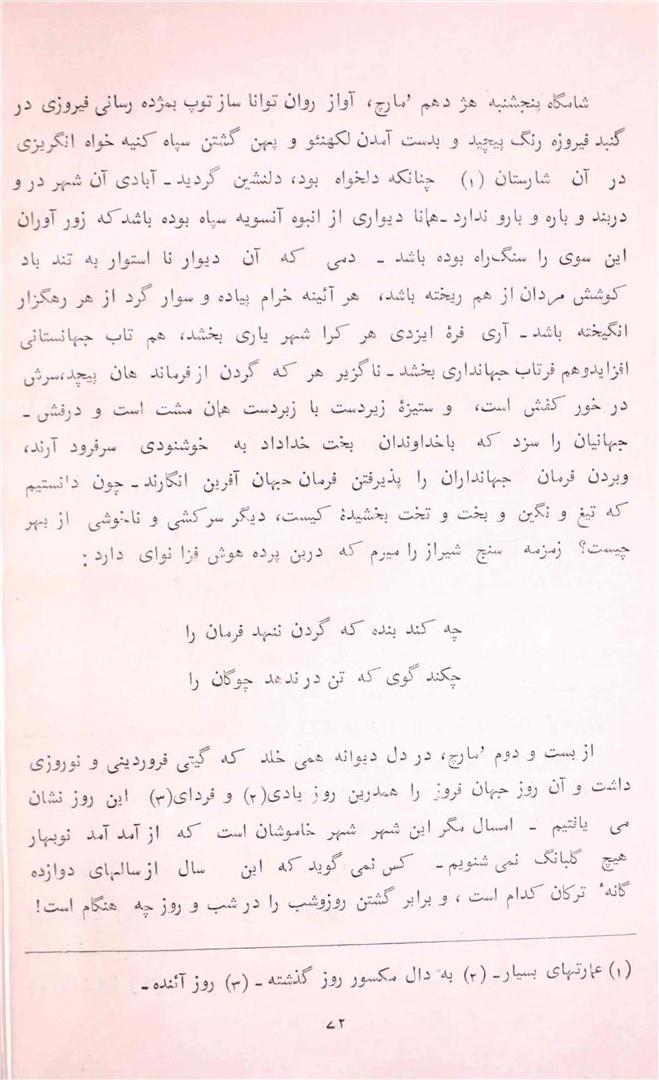 شامگاه پنجشنبه هژ دهم ’مارچ، آواز روان توانا ساز توپ بمژده رسانی فیروزی در
گنبد فیروزه رنگ پیچید و بدست آمدن لکهنئو و پهن گشتن سپاه کنیه خواه انگریزی
در آن شارستان (۱) چنانکه دلخواه بود، دلنشین گردید ـ آبادی آن شهر در و
دربند و باره و بارو ندارد ـ همانا دیواری از انبوه آنسویه سپاه بوده باشد که زور آوران
این سوی را سنگ‌راه بوده باشد ـ دمی که آن دیوار نا استوار به تند باد
کوشش مردان از هم ریخته باشد، هر آئینه خرام پیاده و سوار گرد از هر رهگزار
انگیخته باشد ـ آری فرهٔ ایزدی هر کرا شهر یاری بخشد، هم تاب جهانستانی
افزایدوهم فرتاب جهانداری بخشد ـ ناگزیر هر که گردن از فرماند هان پیچد،سرش
در خور کفش است، و ستیزهٔ زیردست با زبردست همان مشت است و درفش ـ
جهانیان را سزد که باخداوندان بخت خداداد به خوشنودی سرفرود آرند،
وبردن فرمان جهانداران را پذیرفتن فرمان جهان آفرین انگارند ـ چون دانستیم
که تیغ و نگین و بخت و تخت بخشیدهٔ کیست، دیگر سرکشی و ناخوشی از بهر
چیست؟ زمزمه سنج شیراز را میرم که درین پرده هوش فزا نوای دارد :
چه کند بنده که گردن ننهد فرمان را
چکند گوی که تن در ندهد چوگان را
از بست و دوم ’مارچ، در دل دیوانه همی خلد که گیتی فروردینی و نوروزی
داشت و آن روز جهان فروز را همدرین روز یادی(۲) و فردای(۳) این روز نشان
می یافتیم ـ امسال مگر این شهر شهر خاموشان است که از آمد آمد نوبهار
هیچ گلبانگ نمی شنویم ـ کس نمی گوید که این سال از سالهای دوازده
گانهٔ ترکان کدام است ، و برابر گشتن روزوشب را در شب و روز چه هنگام است!
(۱) عمارتهای بسیار ـ (۲) به دال مکسور روز گذشته ـ (۳) روز آئنده ـ
۷۲